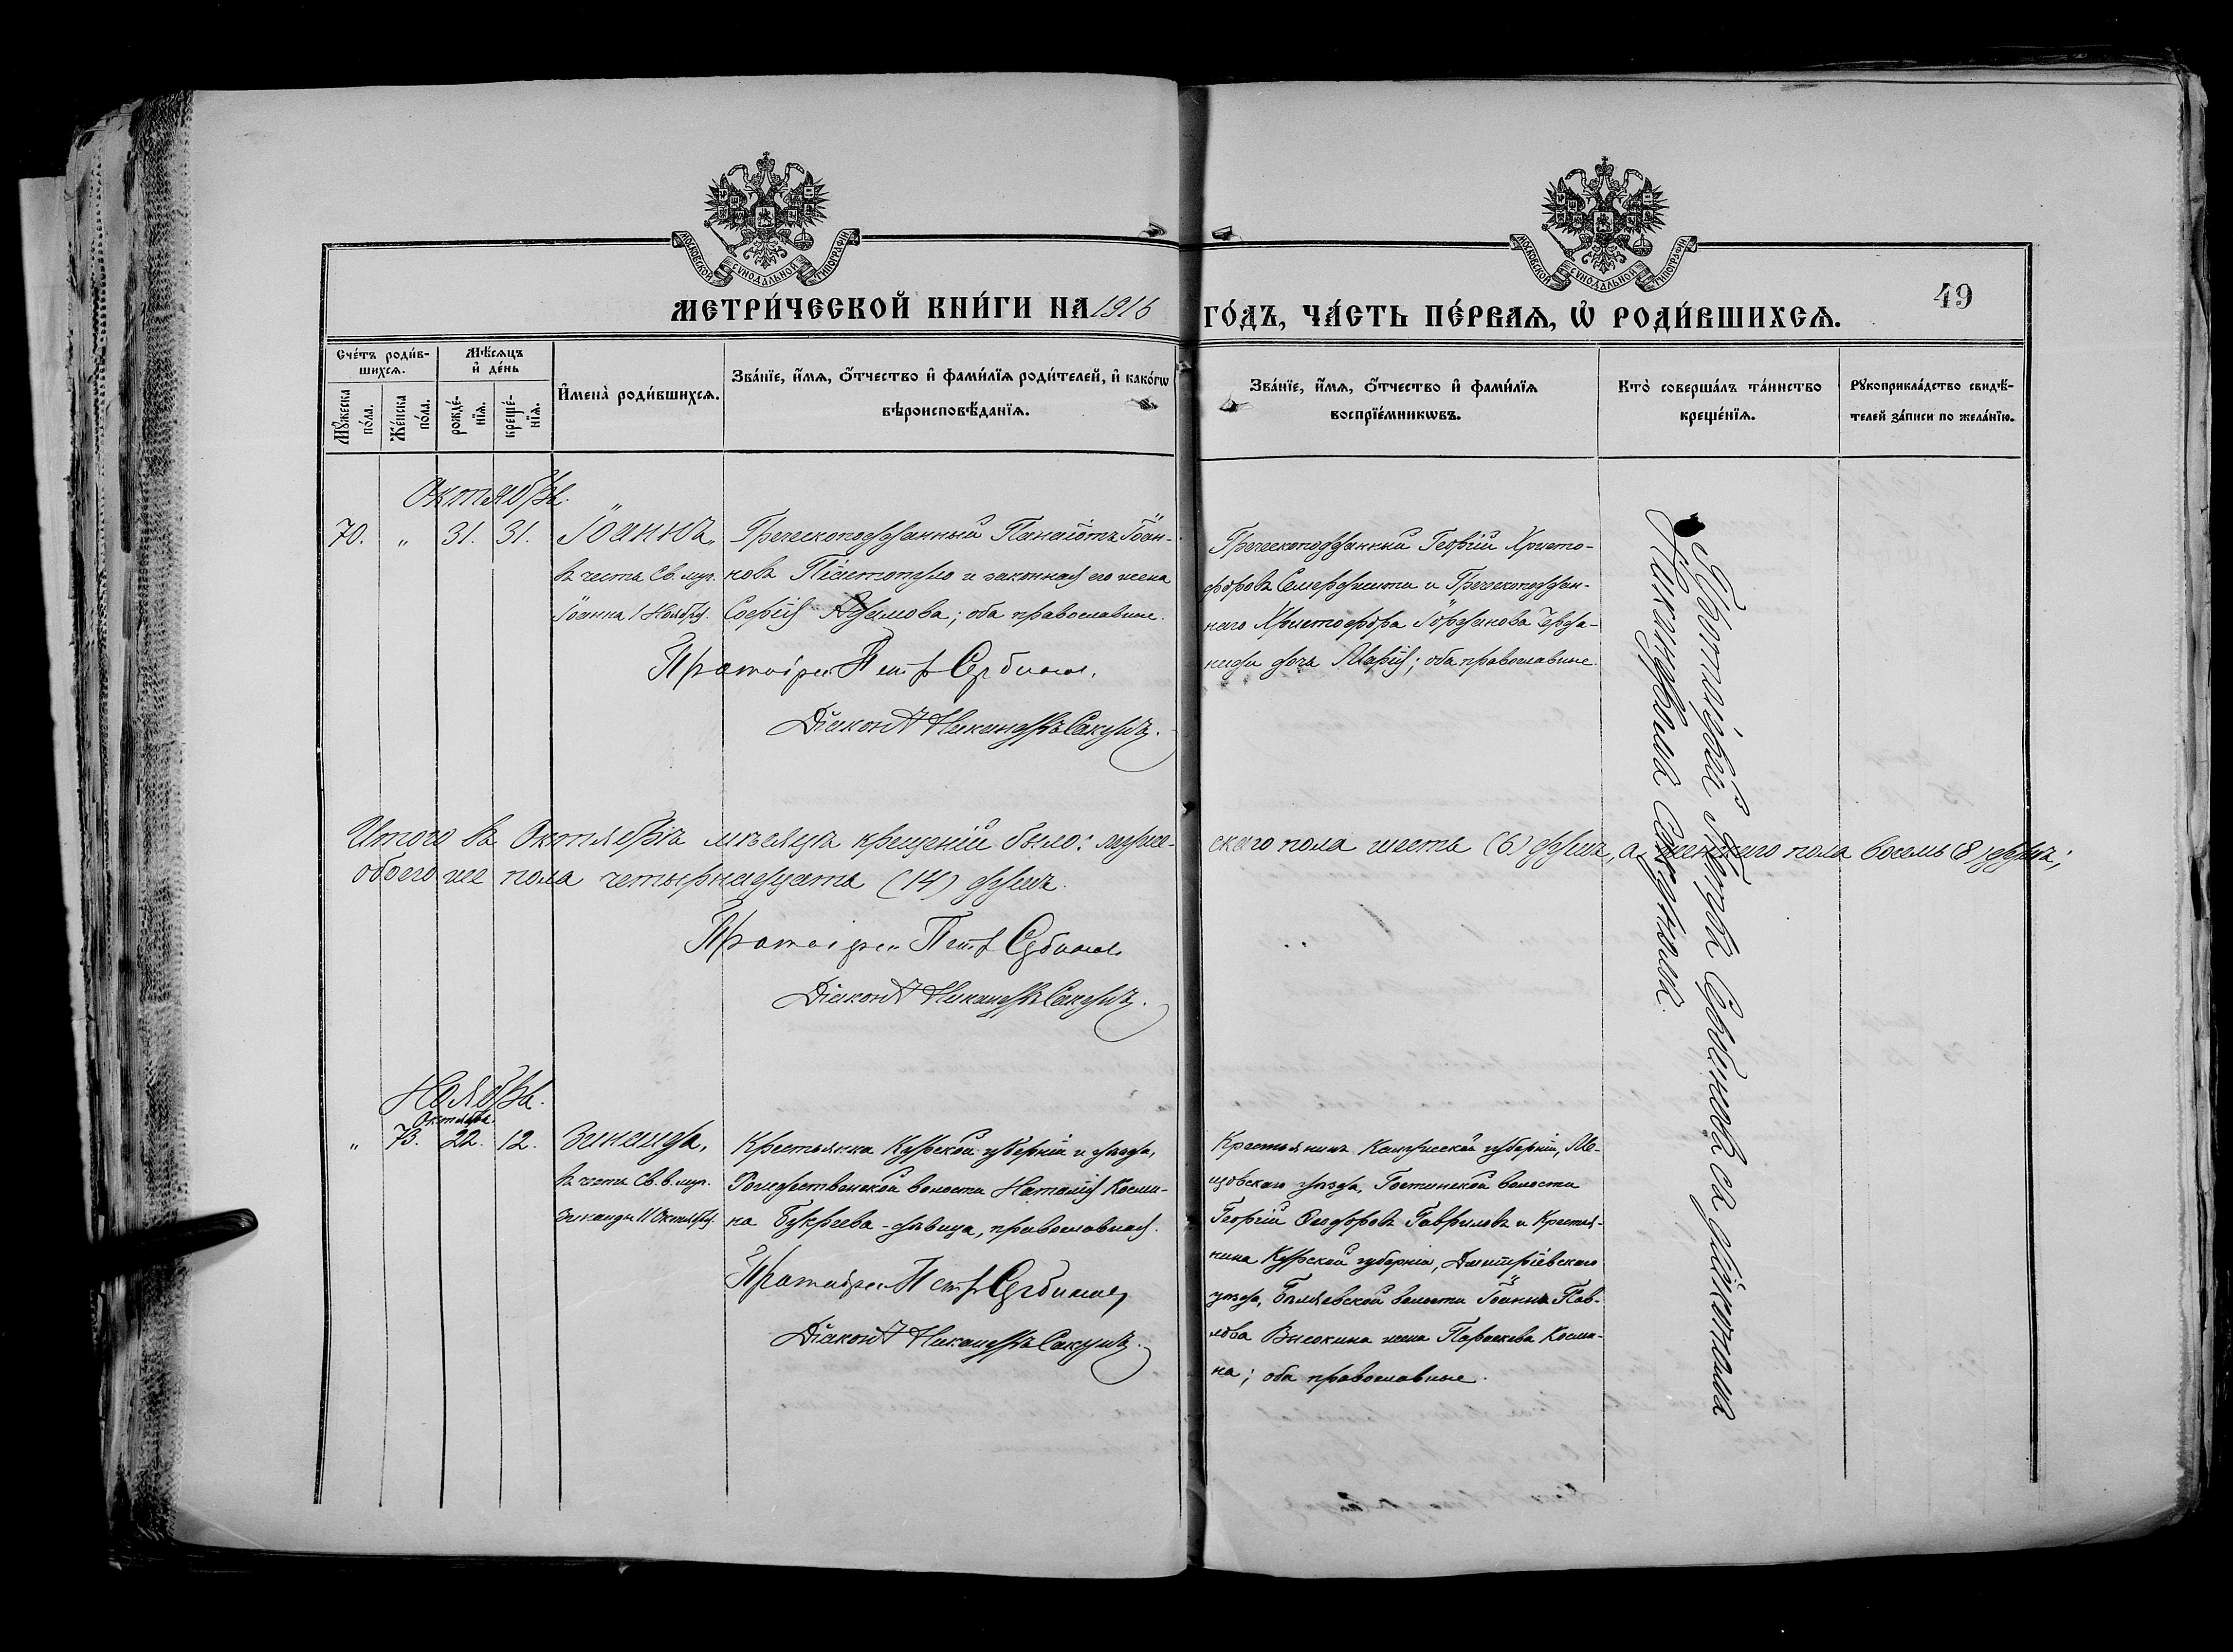 МОСКОВСКОЙ СѴНОДАЛЬНОЙ ТИПОГРАФІИ
МОСКОВСКОЙ СѴНОДАЛЬНОЙ ТИПОГРАФІИ
49
МЕТРИ́ЧЕСКОЙ КНИ́ГИ НА 1916 ГО́ДЪ, ЧА́СТЬ ПЕ́РВАѦ, Ѡ҆ РОДИ́ВШИХСѦ.
Сче́тъ роди́в-
шихсѧ.
Мꙋ́жеска по́ла.
Же́нска по́ла.
Мѣ́сѧцъ
и҆ де́нь
рожде́-
нїѧ.
креще́-
нїѧ.
И҆мена̀ роди́вшихсѧ.
Зва́нїе, и҆́мѧ, ѻ҆́тчество и҆ фами́лїѧ роди́телей, и҆ како́гѡ
вѣроисповѣ́данїѧ.
Зва́нїе, и҆́мѧ, ѻ҆́тчество и҆ фами́лїѧ
воспрїе́мникѡвъ.
Кто̀ соверша́лъ та́инство
креще́нїѧ.
Рꙋкоприкла́дство свидѣ́-
телей за́писи по жела́нїю.
Октябрь.
70. „ 31. 31. Іоаннъ,
въ честь Св. муч.
Іоанна 1 Ноября.
Греческоподданный Панаіотъ Іоан-
новъ и законная его жена
Софія ; оба православные.
Протоіерей Петръ
Діаконъ Никандръ Сакунъ.
Греческоподданный Георгій Христо-
форовъ и Греческоподдан-
наго Христофора
дочь Марія; оба православные.
Протоіерей Петръ съ діакономъ
Никандромъ Сакунымъ.
Итого въ Октябрѣ мѣсяцѣ крещеній было: муже-
скаго пола шесть (6) душъ, а женскаго пола восемь (8) душъ;
обоего же пола четырнадцать (14) душъ.
Протоіерей Петръ
Діаконъ Никандръ Сакунъ.
Ноябрь.
Октября.
„ 73. 22. 12. Зинаида,
въ честь Св. в. муч.
Зинаиды 11 Октября.
Крестьянка Курской губерніи и уѣзда,
Рождественской волости Наталія Косми-
на Букреева - дѣвица, православная.
Протоіерей Петръ
Діаконъ Никандръ Сакунъ.
Крестьянинъ Калужской губерніи, Ме-
щовскаго уѣзда, волости
Георгій Ѳеодоровъ Гавриловъ и Крестья-
нина Курской губерніи, Дмитріевскаго
уѣзда, волости Іоанна Пав-
лова Высокина жена Параскева Косми-
на; оба православные.